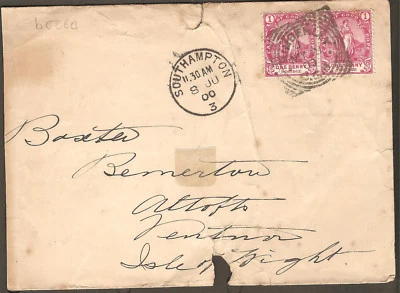 SOUTHAMPTON
11.30 AM
8 JU
00
3
1 1
ONE PENNY
Baxter
Bemerton
Altofts
Ventnor
Isle of Wight.